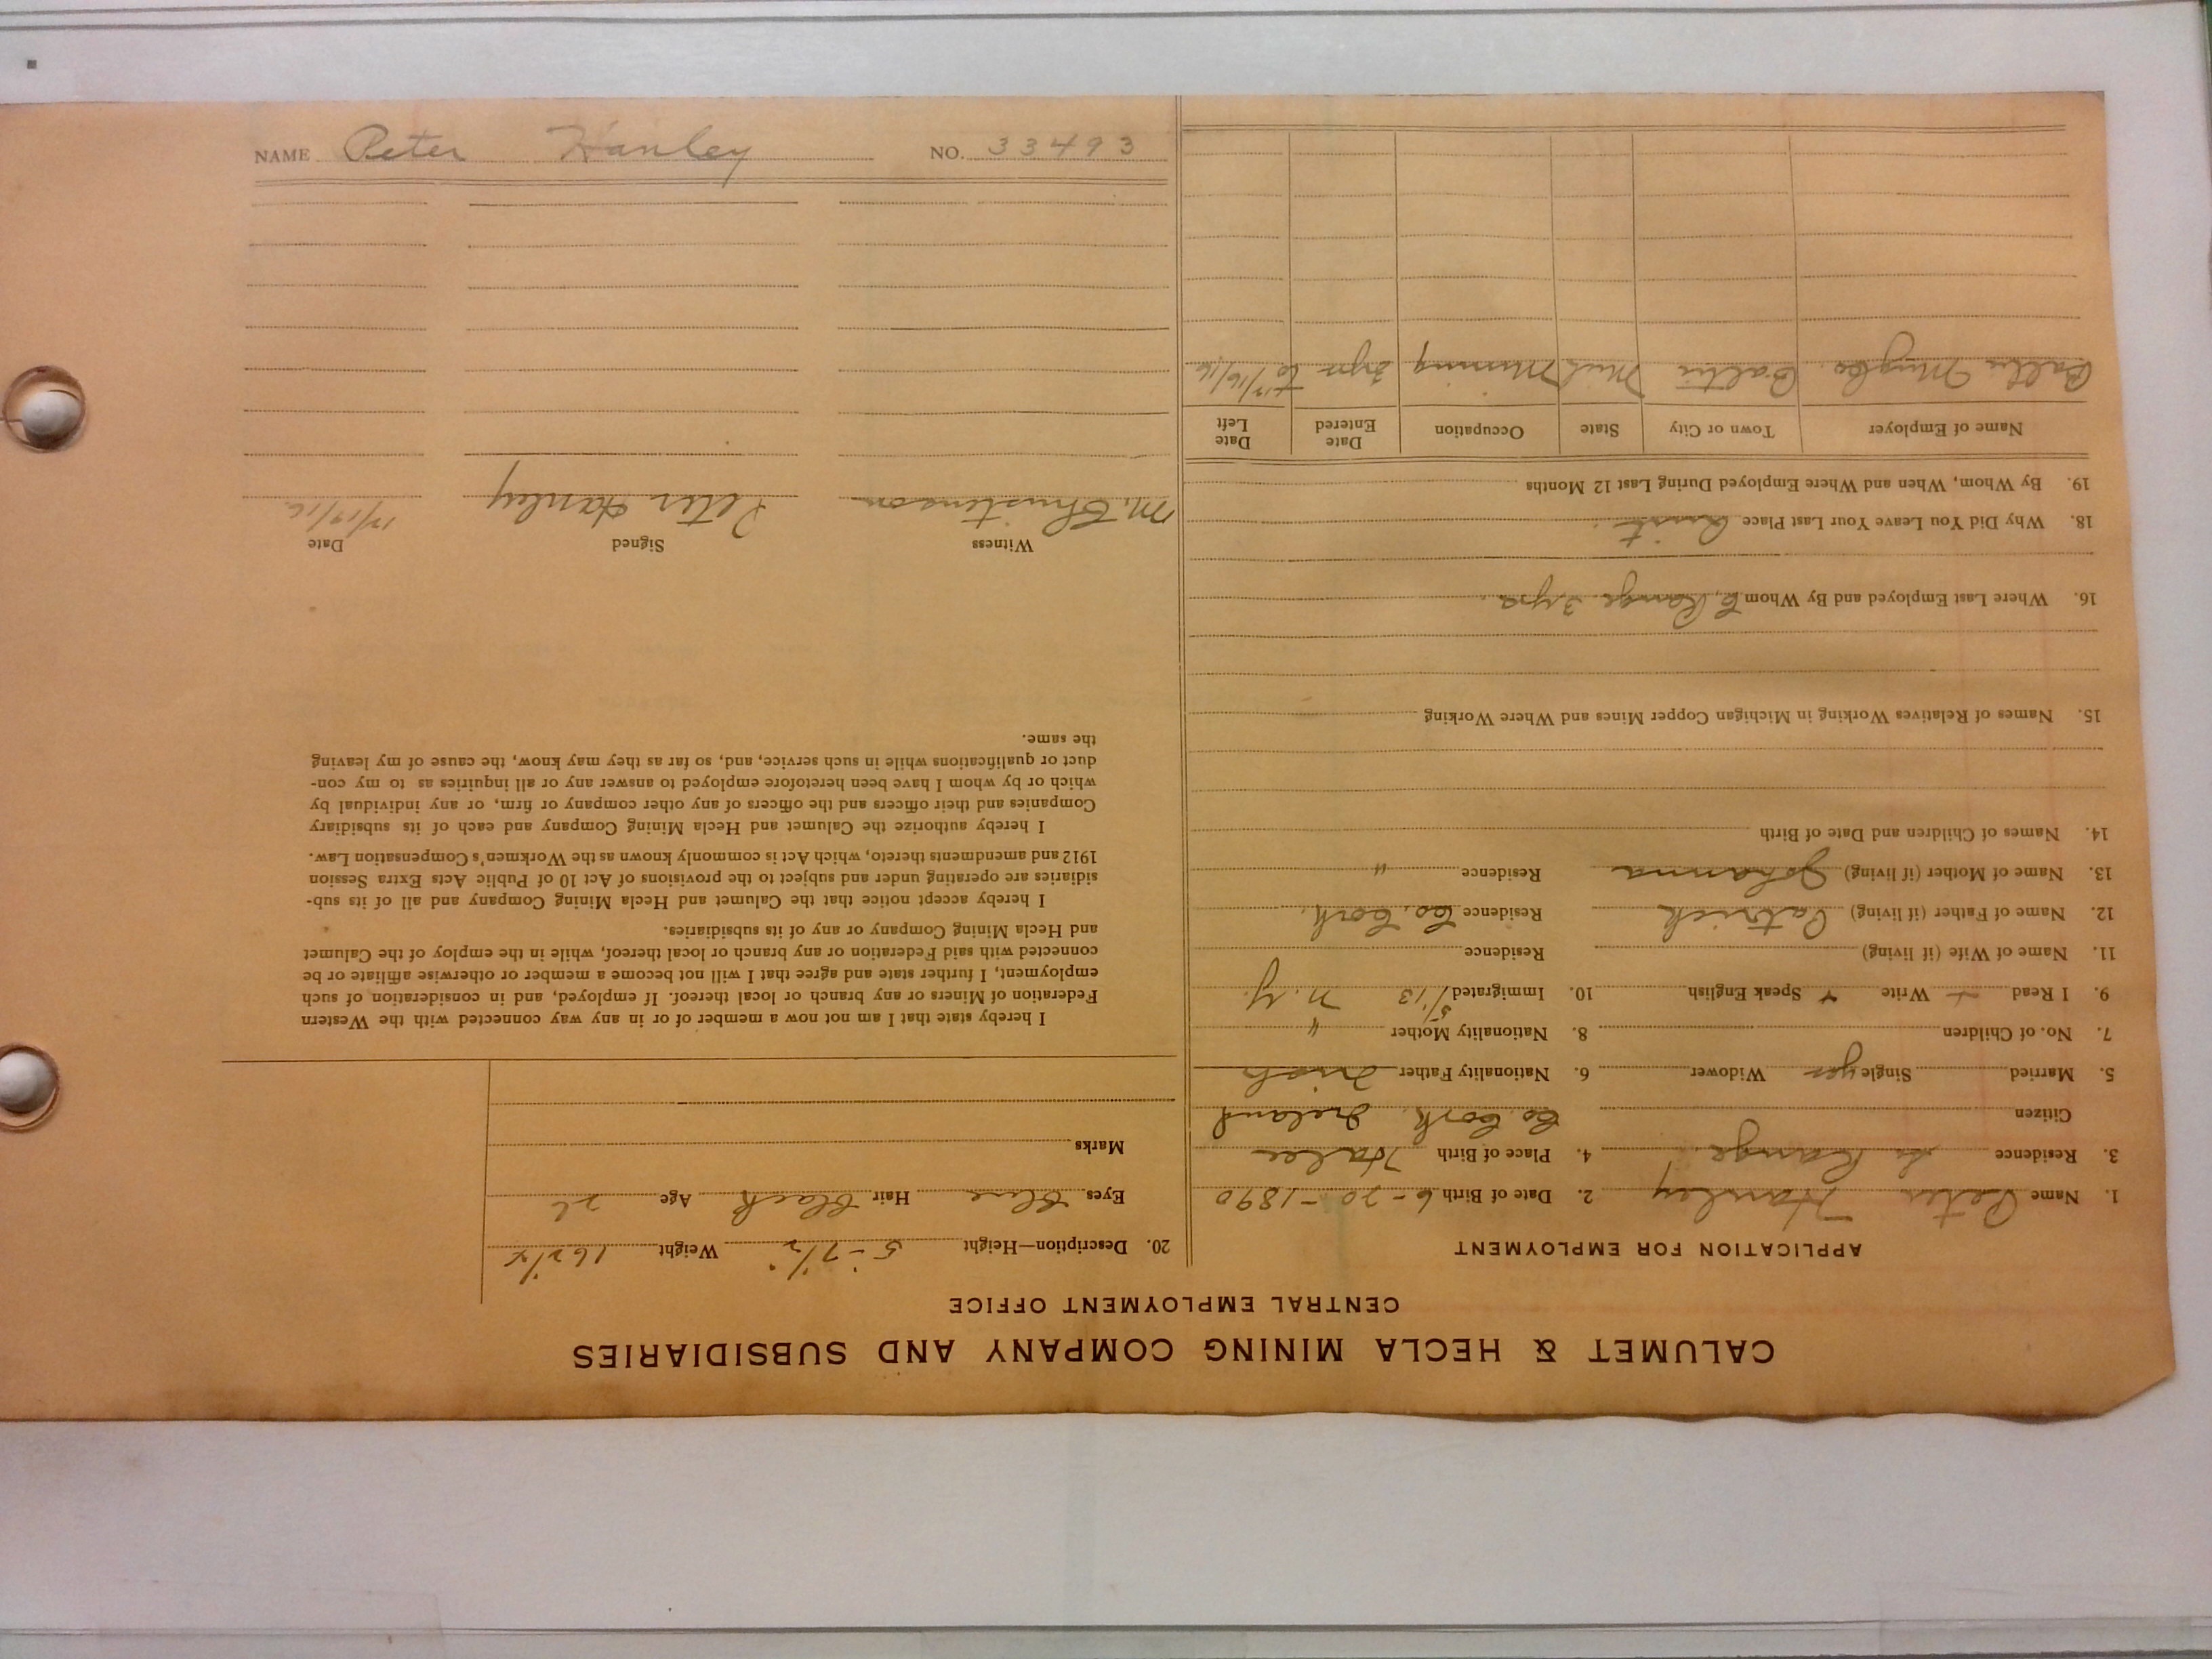 NAME Peter Hanley NO. 33493
CALUMET & HECLA MINING COMPANY AND SUBSIDIARIES
CENTRAL EMPLOYMENT OFFICE
APPLICATION FOR EMPLOYMENT
1. Name Peter Hanley 2. Date of Birth 6-20-1890
3. Residence So Range. 4. Place of Birth
Citizen Co. Cork, Ireland
5. Married Single yes Widower 6. Nationality Father Irish
7. No. of Children 8. Nationality Mother "
9. I Read + Write + Speak English 10. Immigrated 5/13 N.Y.
11. Name of Wife (if living) Residence
12. Name of Father (if living) Patrick Residence Co. Cork.
13. Name of Mother (if living) Johanna Residence "
14. Names of Children and Date of Birth
15. Names of Relatives Working in Michigan Copper Mines and Where Working
16. Where Last Employed and By Whom So Range 3 yrs.
18. Why Did You Leave Your Last Place Quit.
19. By Whom, When and Where Employed During Last 12 Months
Name of Employer Town or City State Occupation Date Entered Date Left
Baltic Mng Co. Baltic Mich Mining 3 yrs to 12/16/16
20. Description—Height 5-7 1/2" Weight 162 1/4
Eyes Blue Hair Black Age 26
Marks
I hereby state that I am not now a member of or in any way connected with the Western
Federation of Miners or any branch or local thereof. If employed, and in consideration of such
employment, I further state and agree that I will not become a member or otherwise affiliate or be
connected with said Federation or any branch or local thereof, while in the employ of the Calumet
and Hecla Mining Company or any of its subsidiaries.
I hereby accept notice that the Calumet and Hecla Mining Company and all of its sub-
sidiaries are operating under and subject to the provisions of Act 10 of Public Acts Extra Session
1912 and amendments thereto, which Act is commonly known as the Workmen's Compensation Law.
I hereby authorize the Calumet and Hecla Mining Company and each of its subsidiary
Companies and their officers and the officers of any other company or firm, or any individual by
which or by whom I have been heretofore employed to answer any or all inquiries as to my con-
duct or qualifications while in such service, and, so far as they may know, the cause of my leaving
the same.
Witness Signed Date
M. Christenson Peter Hanley 12/19/16